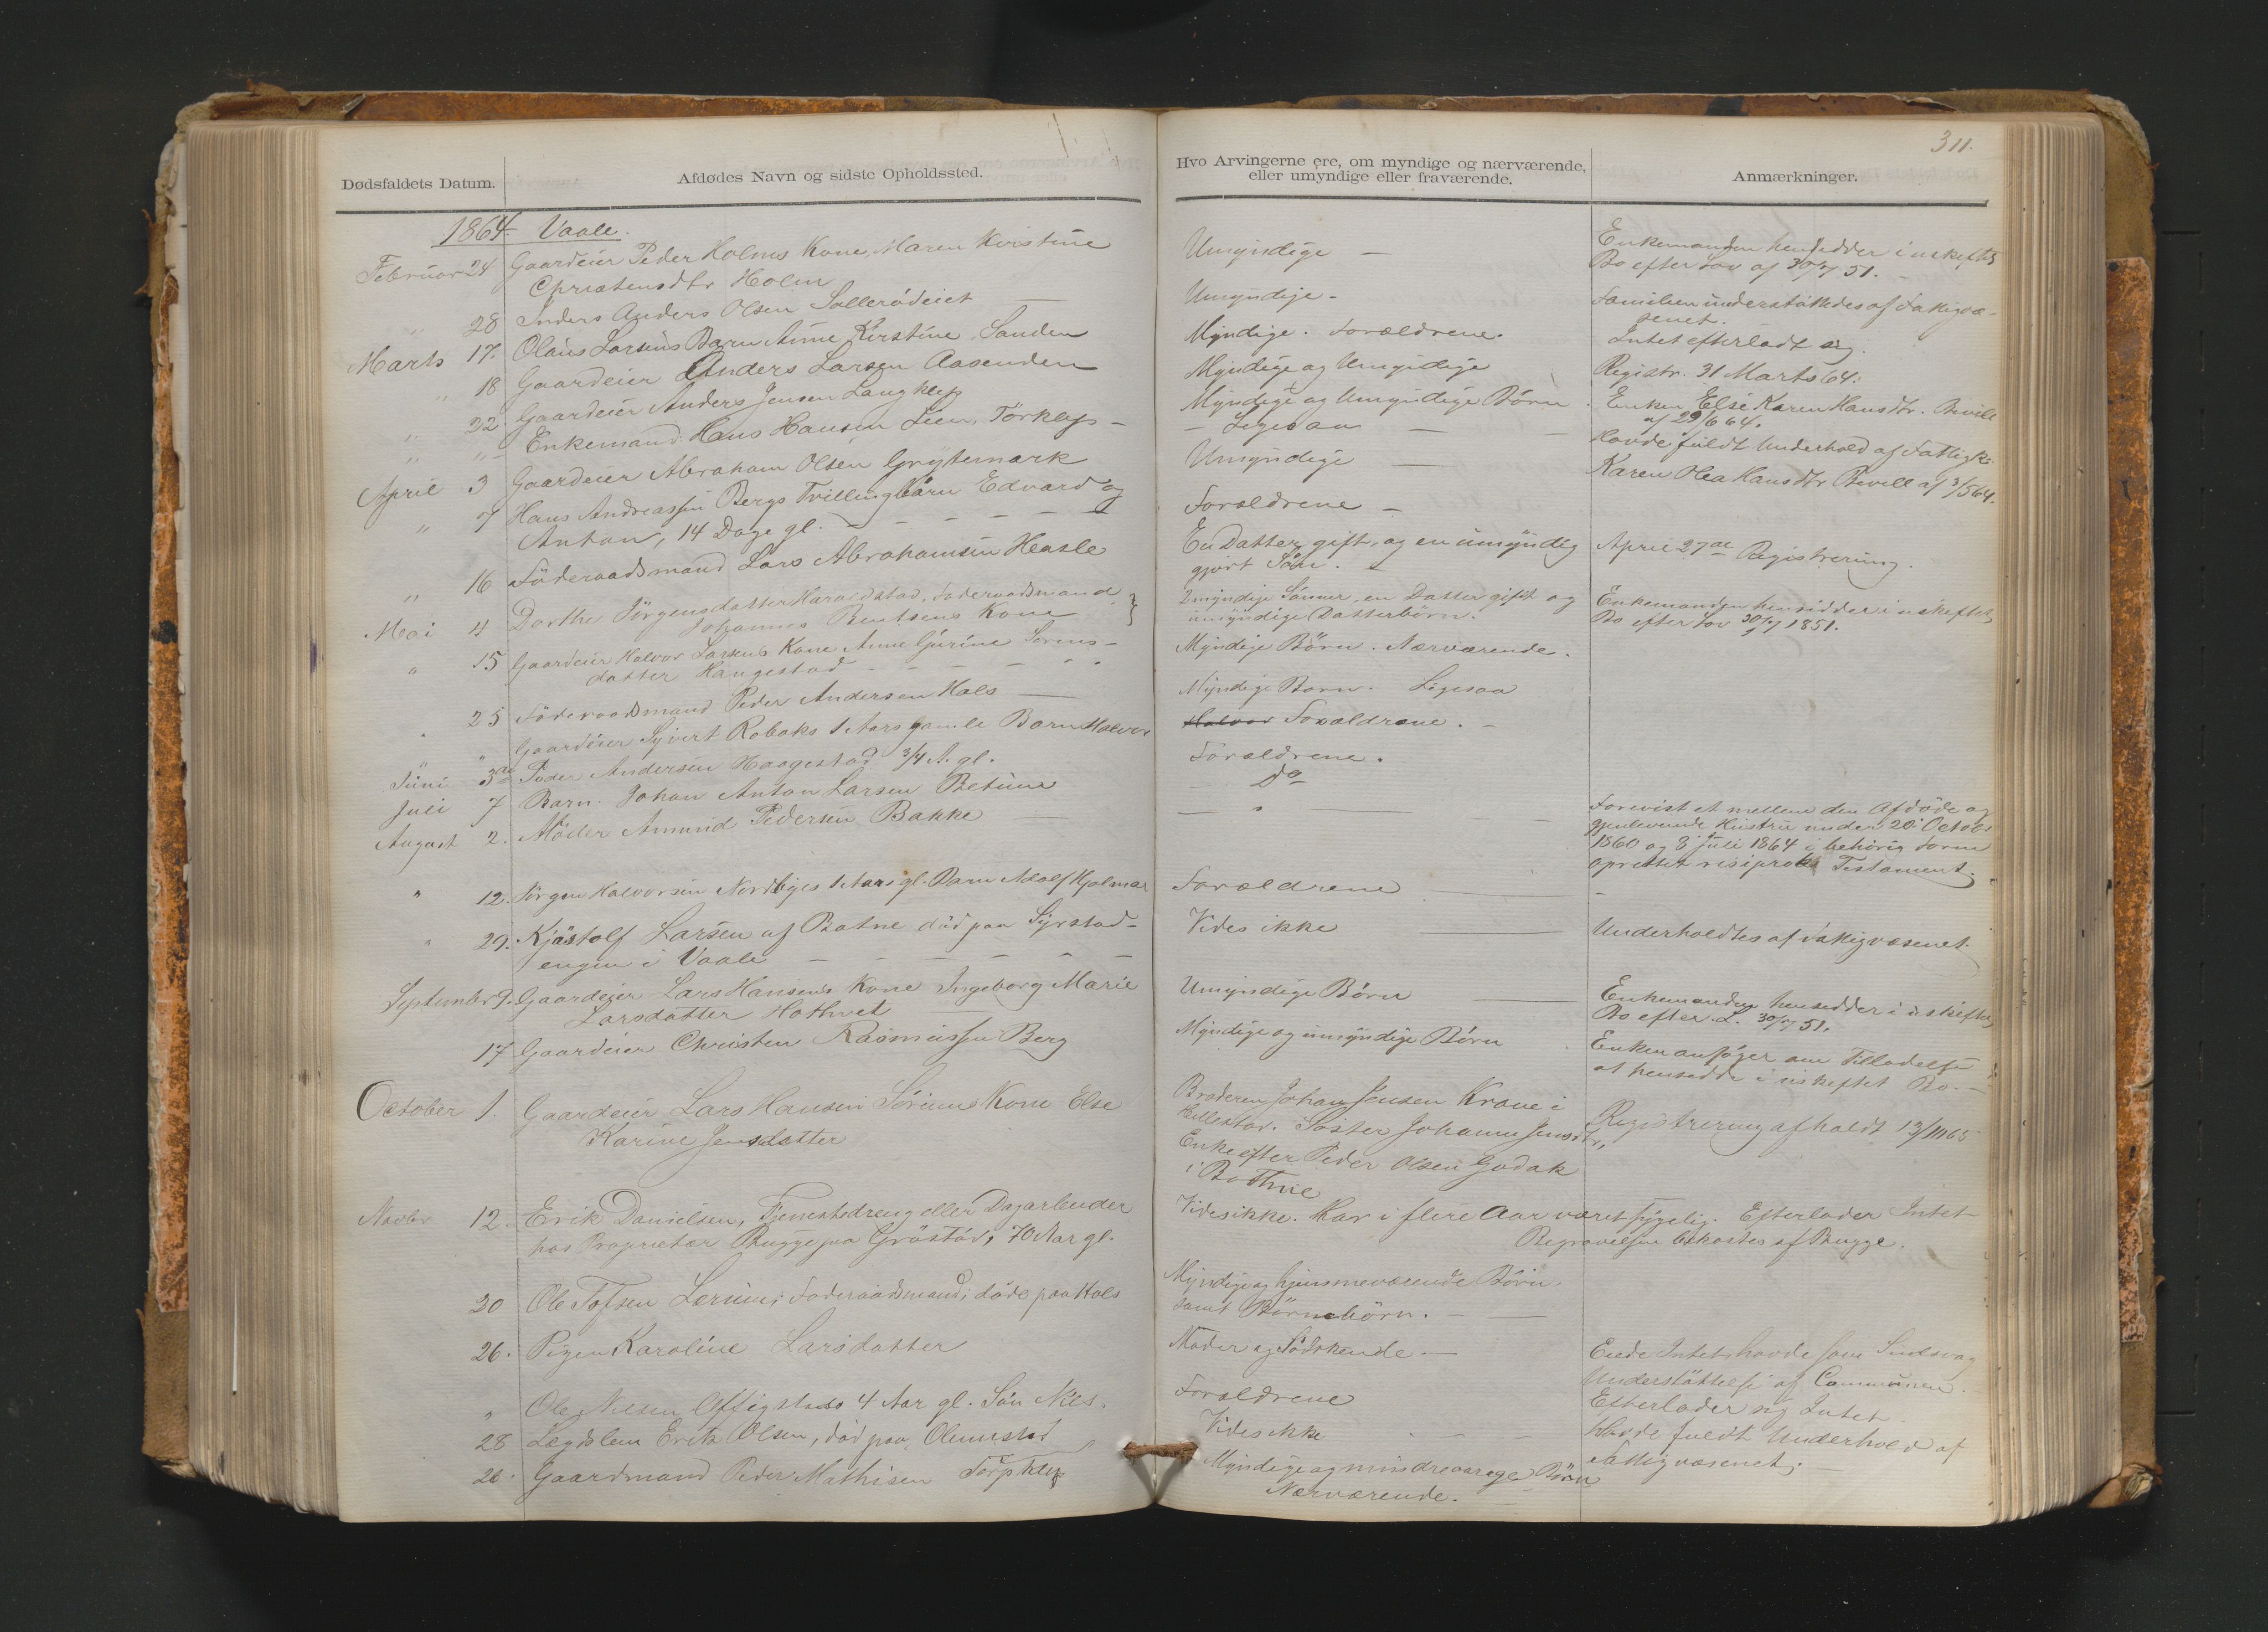 311.
Dødsfaldets Datum.
Afdødes Navn og sidste Opholdssted.
Hvo Arvingerne ere, om myndige og nærværende,
eller umyndige eller fraværende.
Anmærkninger.
1864 Vaale.
Februar 24 Gaardeier Peder Holms Kone, Maren Kirstine
Christensdtr Holm
Umyndige —
Enkemanden hensidder i uskiftet
Bo efter Lov af 30/7 51.
" 28 Inders Anders Olsen Sollerödeiet —
Umyndige -
Familien understöttedes af Fattigvæ-
senet.
Marts 17. Olaus Larsens Barn Anne Kirstine, Sanden
Myndige. Forældrene.
Intet efterladt sig.
" 18 Gaardeier Anders Larsen Aasenden
Myndige og Umyndige
Registr. 31 Marts 64.
" 22 Gaardeier Anders Jensen Langklep
Myndige og Umyndige Börn
Enken Else Karen Hansdtr. Bevill
af 29/6 64.
" " Enkemand Hans Hansen Lien, Törklep -
— Ligesaa —
Havde fuldt Underhold af Fattigk.
April 3 Gaardeier Abraham Olsen Grytemark
Umyndige —
Karen Olea Hansdtr Bevill af 3/5 64.
" 7 Hans Andreassen Bergs Tvillingbörn Edvard og
Anton, 14 Dage gl. — — — — —
Forældrene —
" 16 Föderaadsmand Lars Abrahamsen Heasle
En Datter gift, og en umyndig
gjort Sön. —
April 27de Registrering.
Mai 4 Dorthe Jörgensdatter Haraldstad, Föderaadsmand
Johannes Bentsens Kone
2 myndige Sönner, en Datter gift og
umyndige Datterbörn.
Enkemanden hensidder i uskiftet
Bo efter Lov 30/7 1851.
" 15 Gaardeier Halvor Larsens Kone Anne Gurine Sörens-
datter Haugestad — — — — —
Myndige Börn. Nærværende.
" 25 Föderaadsmand Peder Andersen Hals —
Myndige Börn. Ligesaa
" " Gaardeier Syvert Robaks 1 Aars gamle Barn Halvor
Halvor Forældrene. —
Juni 3de Peder Andersen Haagestad 3/4 A. gl.
Forældrene.
Juli 7 Barn Johan Anton Larsen Betüm
— Do
August 2. Möller Amund Pedersen Bakke —
— " —
Forevist et mellem den Afdöde og
gjenlevende Hustru under 20 Octobr
1860 og 8 Juli 1864 i behörig Form
oprettet resiprokt Testament.
" 12. Jörgen Halvorsen Nordbyes 1 Aars gl. Barn Adolf Hjalmar
Forældrene —
" 29. Kjöstolf Larsen af Botne död paa Syrstad-
engen i Vaale — — — — —
Vides ikke —
Underholdtes af Fattigvæsenet.
September 9. Gaardeier Lars Hansens Kone Ingeborg Marie
Larsdatter Hothvet
Umyndige Börn —
Enkemanden hensidder i uskiftet
Bo efter L. 30/7 51.
17 Gaardeier Christen Rasmussen Berg
Myndige og umyndige Börn
Enken ansöger om Tilladelse
at hensidde i uskiftet Bo. —
October 1. Gaardeier Lars Hansen Sörums Kone Else
Karine Jensdatter
Broderen Johan Jensen Krane i
Söster Johanne Jensdtr,
Enke efter Peder Olsen Godak
i Bothne
Registrering afholdt 13/10 65
Novbr 12. Erik Danielsen, Tjenestedreng eller Dagarbeider
hos Proprietær Bugge paa Gröstöd, 70 Aar gl.
Vides ikke. Har i flere Aar været sygelig. Efterlader Intet
Begravelsen bekostes af Bugge.
20 Ole Tofsen Lerum, Foderaadsmand, döde paa Hols
Myndige og hjemmeværende Börn
samt Börnebörn. — —
26. Pigen Karoline Larsdatter
Moder og Södskende —
Eiede Intet, havde som Sindsvag
Understöttelse af Communen.
" Ole Nilsen Offigstads 4 Aar gl. Sön Nils.
Forældrene
Efterlader sig Intet
28 Lægdslem Erik Olsen, död paa Olumstad
Vides ikke — — —
Havde fuldt Underhold af
Fattigvæsenet.
28. Gaardmand Peder Mathisen Törpklep
Myndige og mindreaarige Börn
Nærværende.